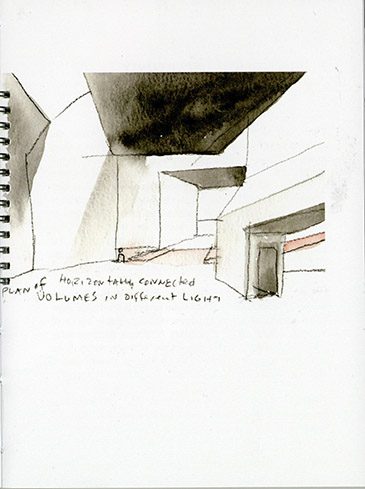 PLAN of HORIZONTALLY CONNECTED
VOLUMES IN DIFFERENT LIGHT